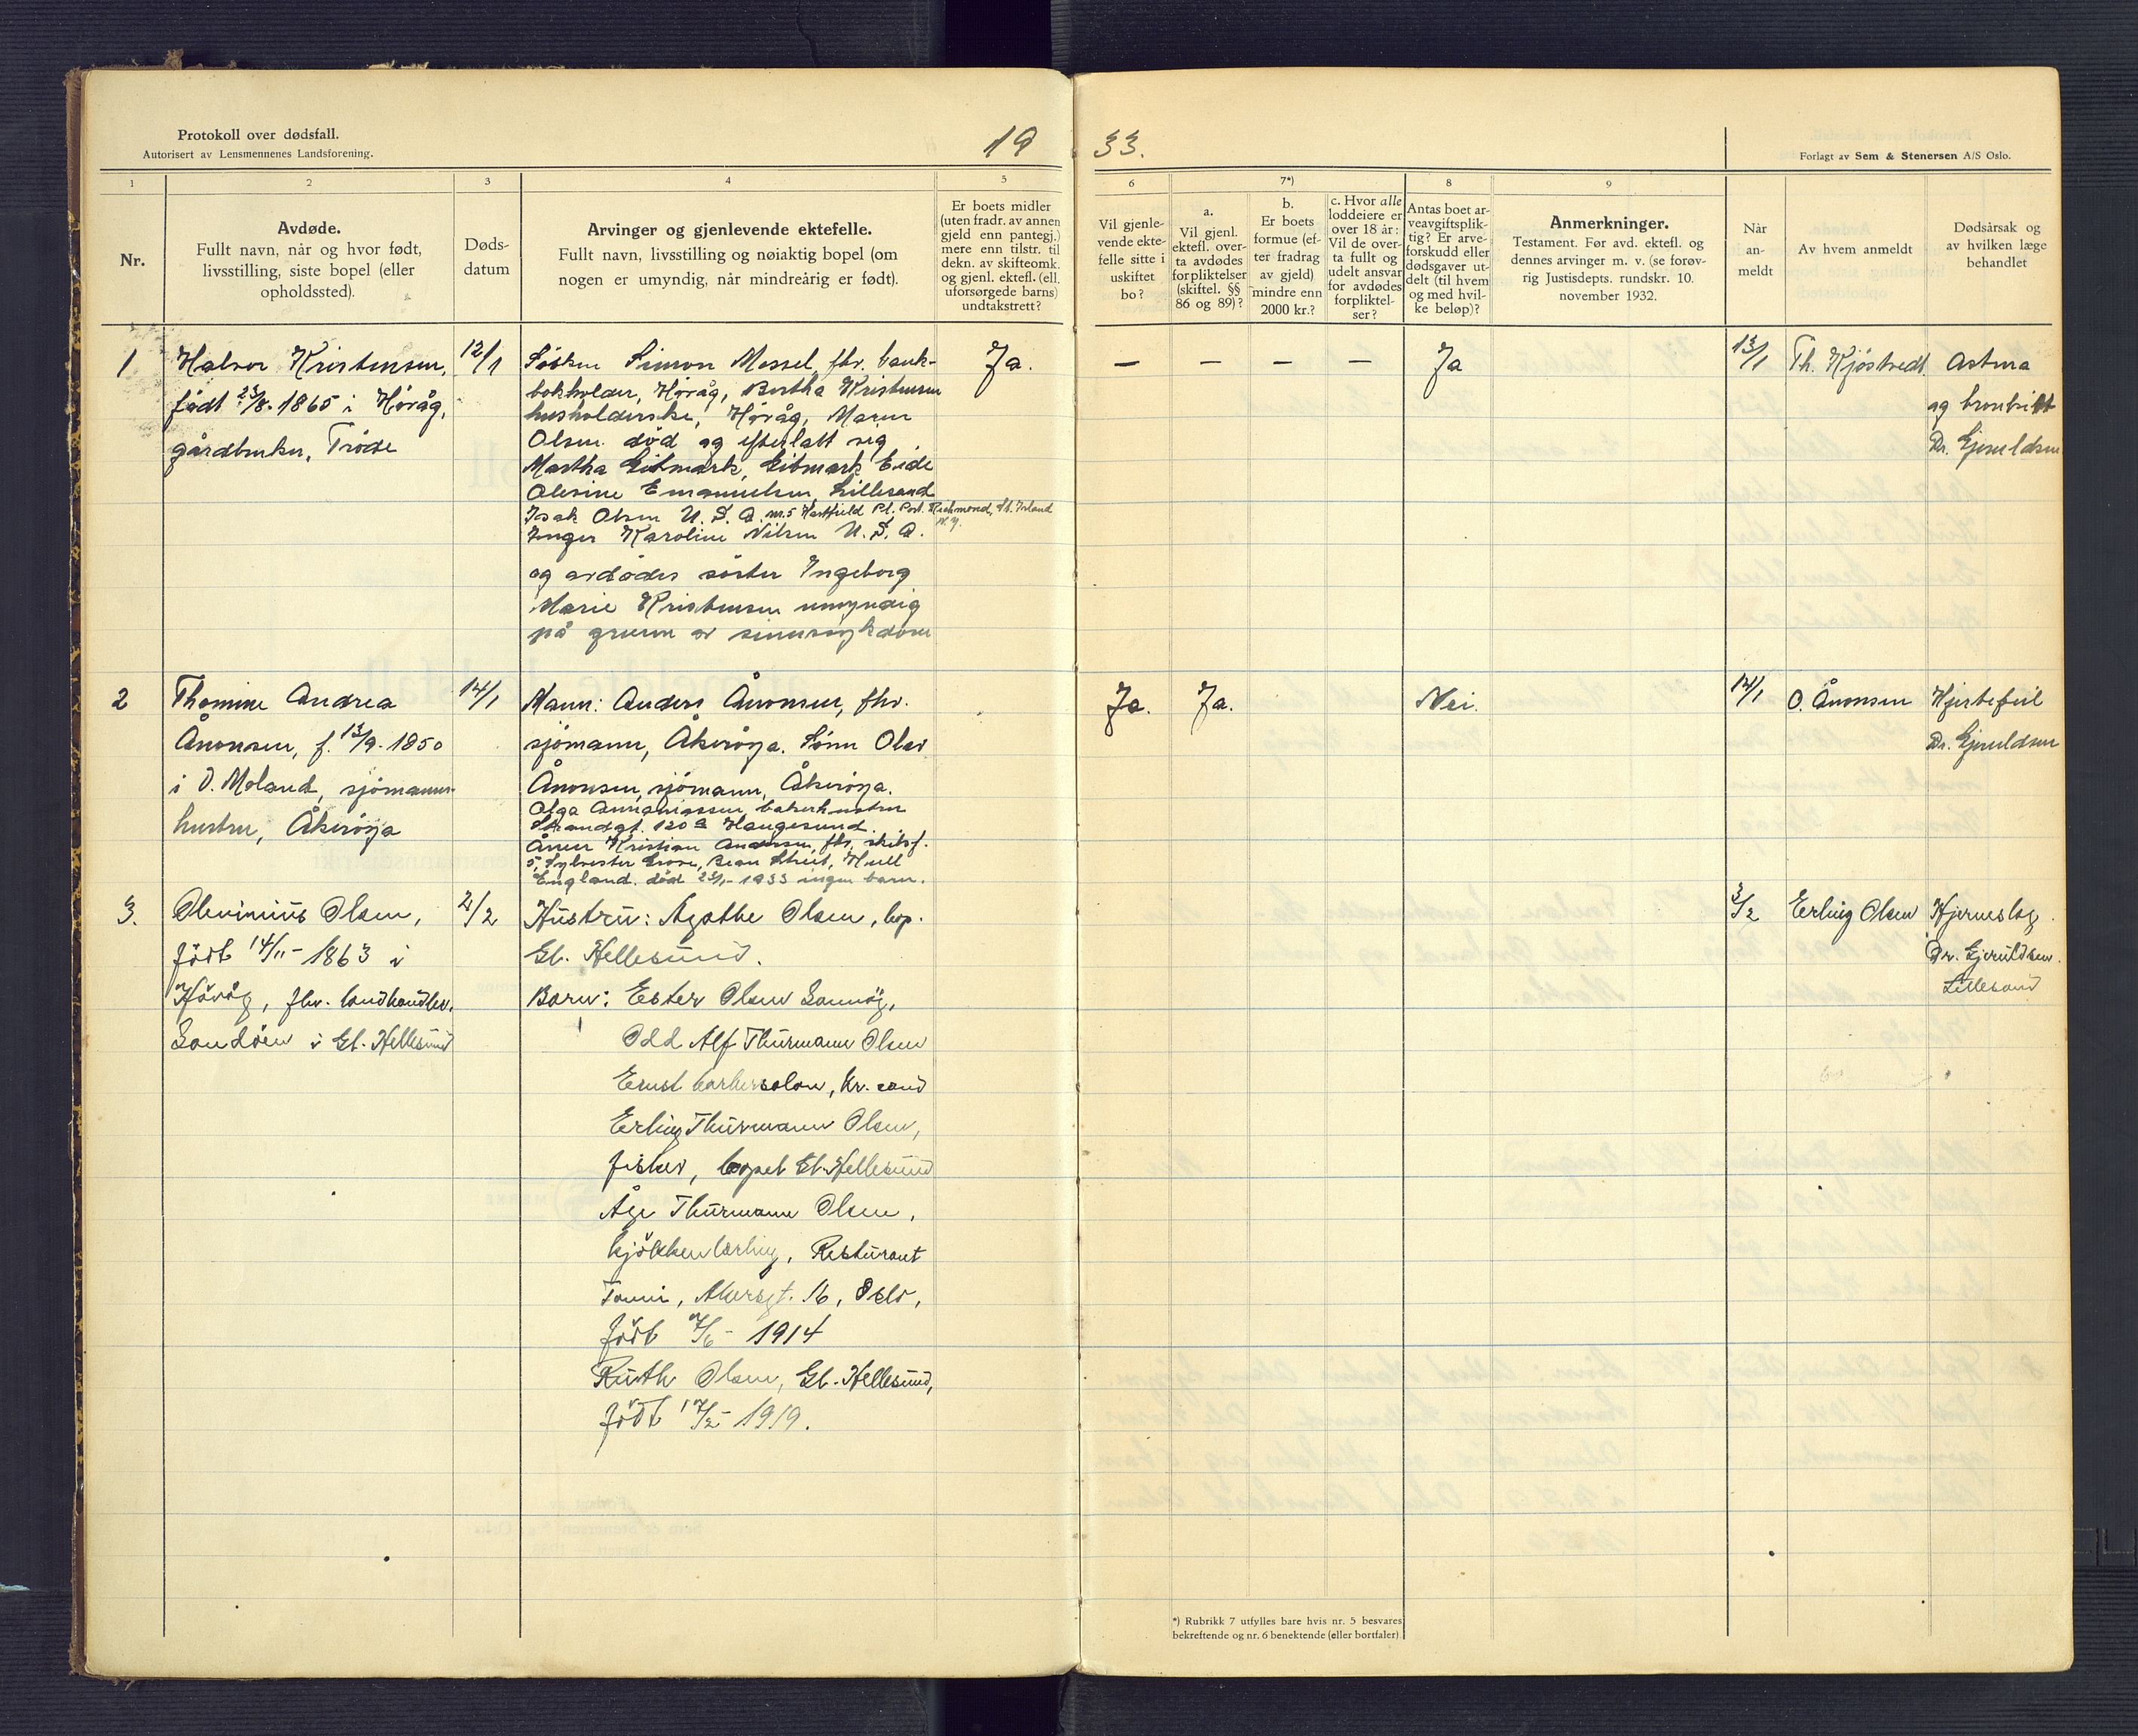 Protokoll over dødsfall.
Autorisert av Lensmennenes Landsforening.
19
33.
Forlagt av Sem & Stenersen A/S Oslo.
1
2
3
4
5
6
7*)
8
9
Nr.
Avdøde.
Fullt navn, når og hvor født,
livsstilling, siste bopel (eller
opholdssted).
Døds-
datum
Arvinger og gjenlevende ektefelle.
Fullt navn, livsstilling og nøiaktig bopel (om
nogen er umyndig, når mindreårig er født).
Er boets midler
(uten fradr. av annen
gjeld enn pantegj.)
mere enn tilstr. til
dekn. av skifteomk.
og gjenl. ektefl. (ell.
uforsørgede barns)
undtakstrett?
Vil gjenle-
vende ekte-
felle sitte i
uskiftet
bo?
a.
Vil gjenl.
ektefl. over-
ta avdødes
forpliktelser
(skiftel. §§
86 og 89)?
b.
Er boets
formue (ef-
ter fradrag
av gjeld)
mindre enn
2000 kr.?
c. Hvor alle
loddeiere er
over 18 år:
Vil de over-
ta fullt og
udelt ansvar
for avdødes
forpliktel-
ser?
Antas boet ar-
veavgiftsplik-
tig? Er arve-
forskudd eller
dødsgaver ut-
delt (til hvem
og med hvil-
ke beløp)?
Anmerkninger.
Testament. Før avd. ektefl. og
dennes arvinger m. v. (se forøv-
rig Justisdepts. rundskr. 10.
november 1932.
Når
an-
meldt
Av hvem anmeldt
Dødsårsak og
av hvilken læge
behandlet
1
Halvor Kristensen,
født 23/8-1865 i Høvåg,
gårdbruker, Trøde
12/1
Søsken Simon Mossel, fhv. bank-
bokholder, Høvåg, Bertha Kristensen
husholderske, Høvåg, Maren
Olsen død og efterlatt seg
Martha Eitmark, Eitmark Eide
Olevine Emanuelsen, Lillesand
Isak Olsen U.S.A. nr. 5 Hartfield Pl. Port. Richmond, St. Island
N.Y.
Inger Karoline Nilsen U.S.A.
og avdødes søster Ingeborg
Marie Kristensen umyndig
på grunn av sinnssykdom
Ja.
— — — —
Ja
13/1
Th. Kjøstvedt
Astma
og bronkitt
Dr. Gjeruldsen
2
Thomine Andrea
Ånonsen, f. 13/9-1850
i V. Moland, sjømanns-
hustru, Åkerøya
14/1
Mann: Anders Ånonsen, fhv.
sjømann, Åkerøya. Sønn Olav
Ånonsen, sjømann, Åkerøya.
Olga Annaniassen, bakerhustru
Strandgt. 120 a Haugesund.
Ånen Kristian Andersen, fhv. skibsf.
5, Sylvester Grove, Bean Street, Hull
England. død 23/1-1933 ingen barn.
Ja.
Ja.
Nei.
14/1
O. Ånonsen
Hjertefeil
Dr. Gjeruldsen
3.
Olevinius Olsen,
født 14/11-1863 i
Høvåg, fhv. landhandler,
Sandøen i Gl. Hellesund
2/2
Hustru: Agathe Olsen, bop.
Gl. Hellesund.
Barn: Ester Olsen
Odd Alf Thurmann Olsen
Ernst barbersalon, Kr. sand
Erling Thurmann Olsen,
fisker, bopel Gl. Hellesund
Åge Thurmann Olsen,
kjøkkenlærling, Resturant
Akersgt. 16, Oslo,
født 7/6-1914
Ruth Olsen, Gl. Hellesund,
født 17/2-1919.
3/2
Erling Olsen
Hjerneslag.
Dr. Gjeruldsen.
Lillesand
*) Rubrikk 7 utfylles bare hvis nr. 5 besvares
bekreftende og nr. 6 benektende (eller bortfaler)